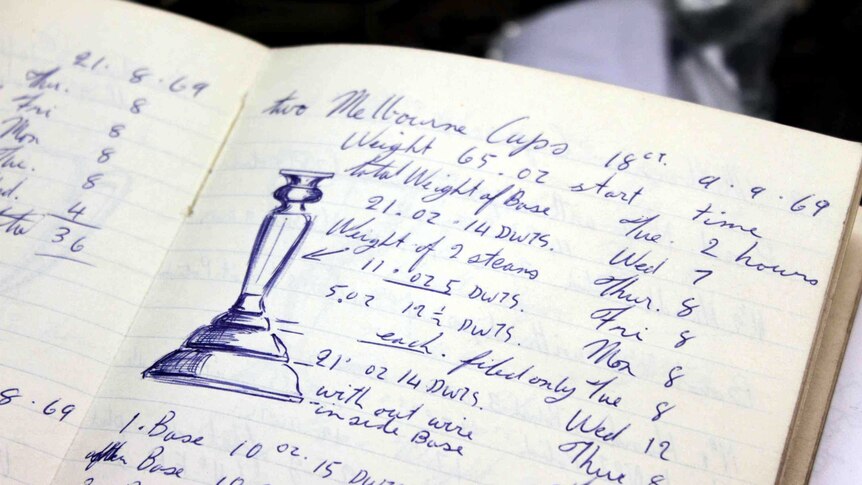 21. 8. 69
Thu. 8
Fri 8
Mon 8
Tue. 8
Wed. 4
36
8. 69
two Melbourne Cups 18ct. 9. 9. 69
Weight 65. oz start time
total Weight of Base Tue. 2 hours
21. oz. 14 DWTS. Wed 7
Weight of 2 steams Thur. 8
11. oz 5 DWTS. Fri 8
5. oz 12 ½ DWTS. Mon 8
each. filed only Tue 8
21. oz 14 DWTS. Wed 12
with out wire Thur 8
inside Base
1. Base 10 oz. 15 DWTS
Base 10 oz.